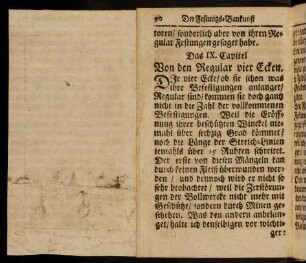 90 Der Festungs-Baukunst
toren/ sonderlich aber von ihren Re-
gular Festungen gesaget habe.
Das IX. Capitel
Von den Regular vier Ecken.
DIe vier Ecke/ ob sie schon was
ihre Befestigungen anlanget/
Regular sind/ kommen sie doch gantz
nicht in die Zahl der vollkommenen
Befestigungen. Weil die Eröff-
nung ihrer beschützten Winckel nie-
mahl über sechzig Grad kömmet/
noch die Länge der Streich-Linien
jewahls über 75 Ruhten schreitet.
Der erste von diesen Mängeln kan
durch keinen Fleiß überwunden wer-
den/ und dennoch wird er nicht so
sehr beobachtet/ weil die Zerstörun-
gen der Bollwercke nicht mehr mit
Geschütze/ sondern durch Minen ge-
schehen. Was den andern anbelan-
get/ halte ich denselbigen vor wichti-
ger: